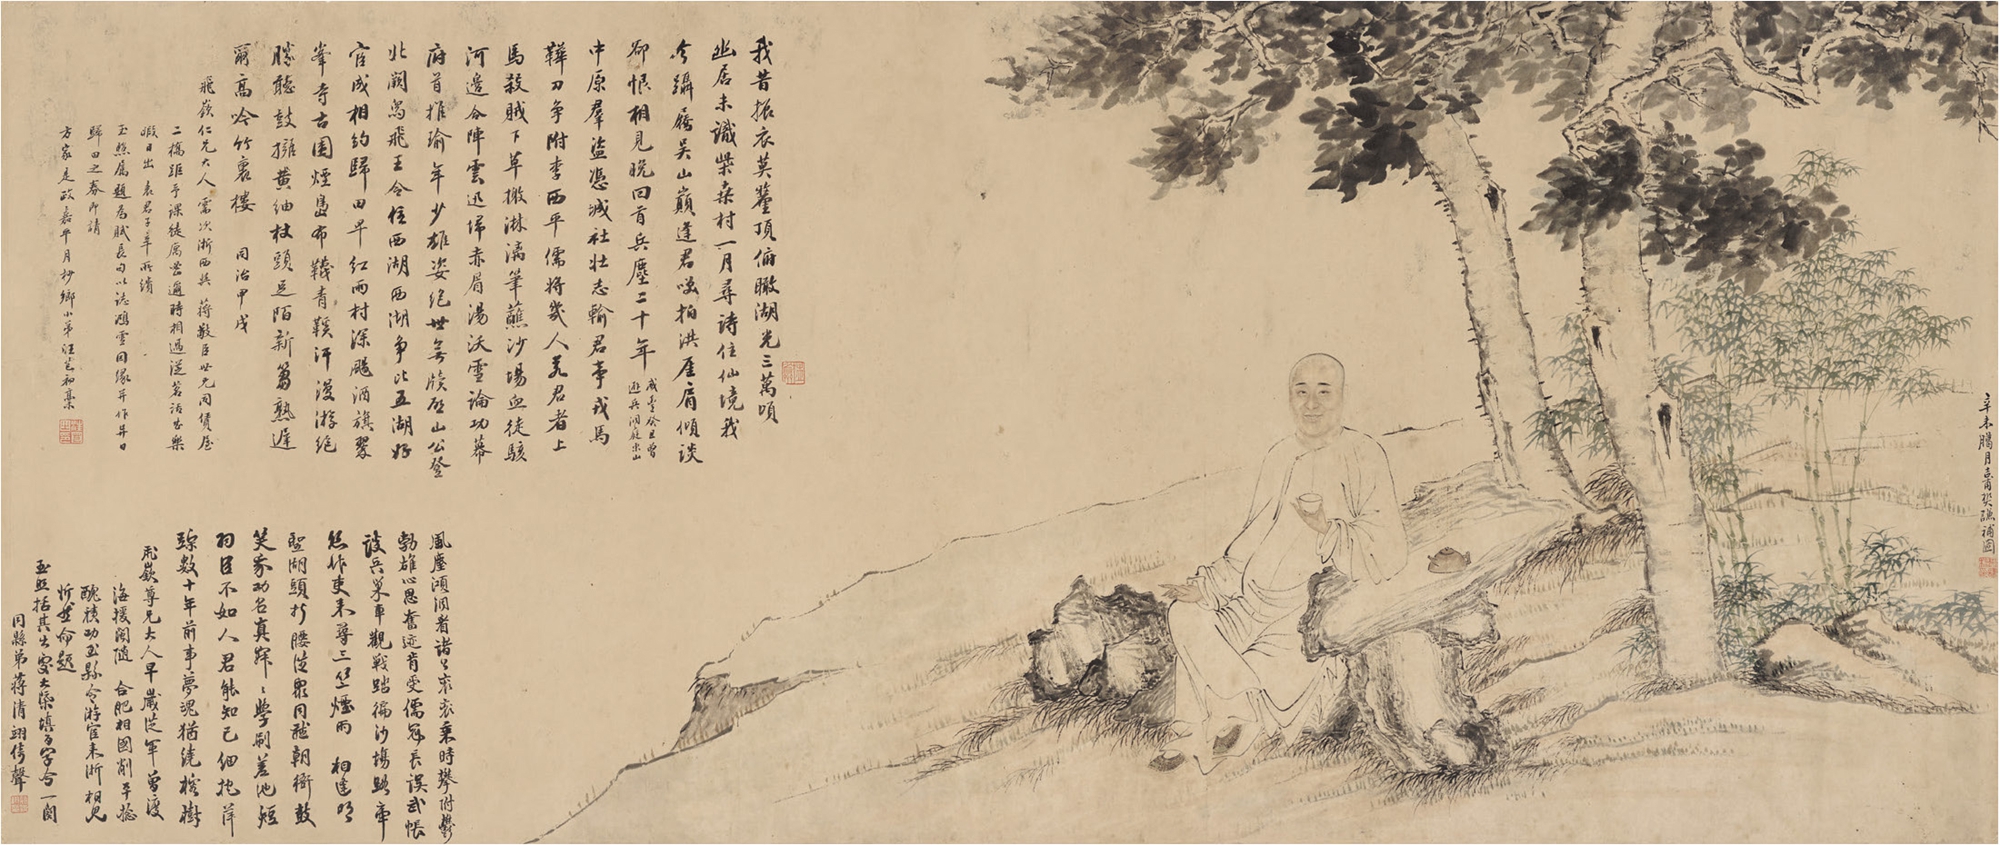 辛未臘月
補圖
我昔振衣莫釐頂俯瞰湖光三萬頃
幽居未識柴桑村一月尋詩住仙境我
今躡屩吳山巔逢君笑拍洪厓肩傾談
卻恨相見晚回首兵塵二十年
咸豐癸丑曾
避兵洞庭東山
中原羣盜憑滅社壯志輸君事戎馬
韡刀爭附李西平儒將幾人是君者上
馬殺賊下草檄淋漓筆蘸沙場血徒駭
河邊合陣雲迅掃赤眉湯沃雪論功幕
府首推瑜年少雄姿絕世無牋啟山公登
北闕舄飛王令住西湖西湖爭比五湖好
官成相約歸田早紅雨村深颺酒旗翠
峯寺古圍煙島布韈青鞵汗漫游絕
勝聽鼓擁黃紬杖頭足陌新篘熟遲
爾高吟竹裏樓 同治甲戌
飛嶔仁兄大人需次浙西與蔣敬臣世兄同僦屋
二橋距予課徒廬密邇時相過從茗話為樂
暇日出袁君子羊所繢
玉照屬題為賦長句以誌鴻雪因緣并作異日
歸田之券即請
方家是政嘉平月杪鄉小弟汪芑初稾
風塵澒洞者諸公袞袞乘時攀附鬱
勃雄心思奮迹肯受儒冠長誤武帳
談兵巢車觀戰踏徧沙場路牽
絲作吏來尋三竺煙雨 相逢明
聖湖頭折腰從眾同聽朝衙鼓
笑家功名真
羽臣不如人君能知己細把萍
蹤數十年前事夢魂猶繞榕樹
飛嶔尊兄大人早歲從軍曾渡
海援閩隨 合肥相國削平捻
醜積功至縣令游宦來浙相見
忻然命題
玉照括其出處大槩填百字令一闋
同縣弟蔣清翊倚聲